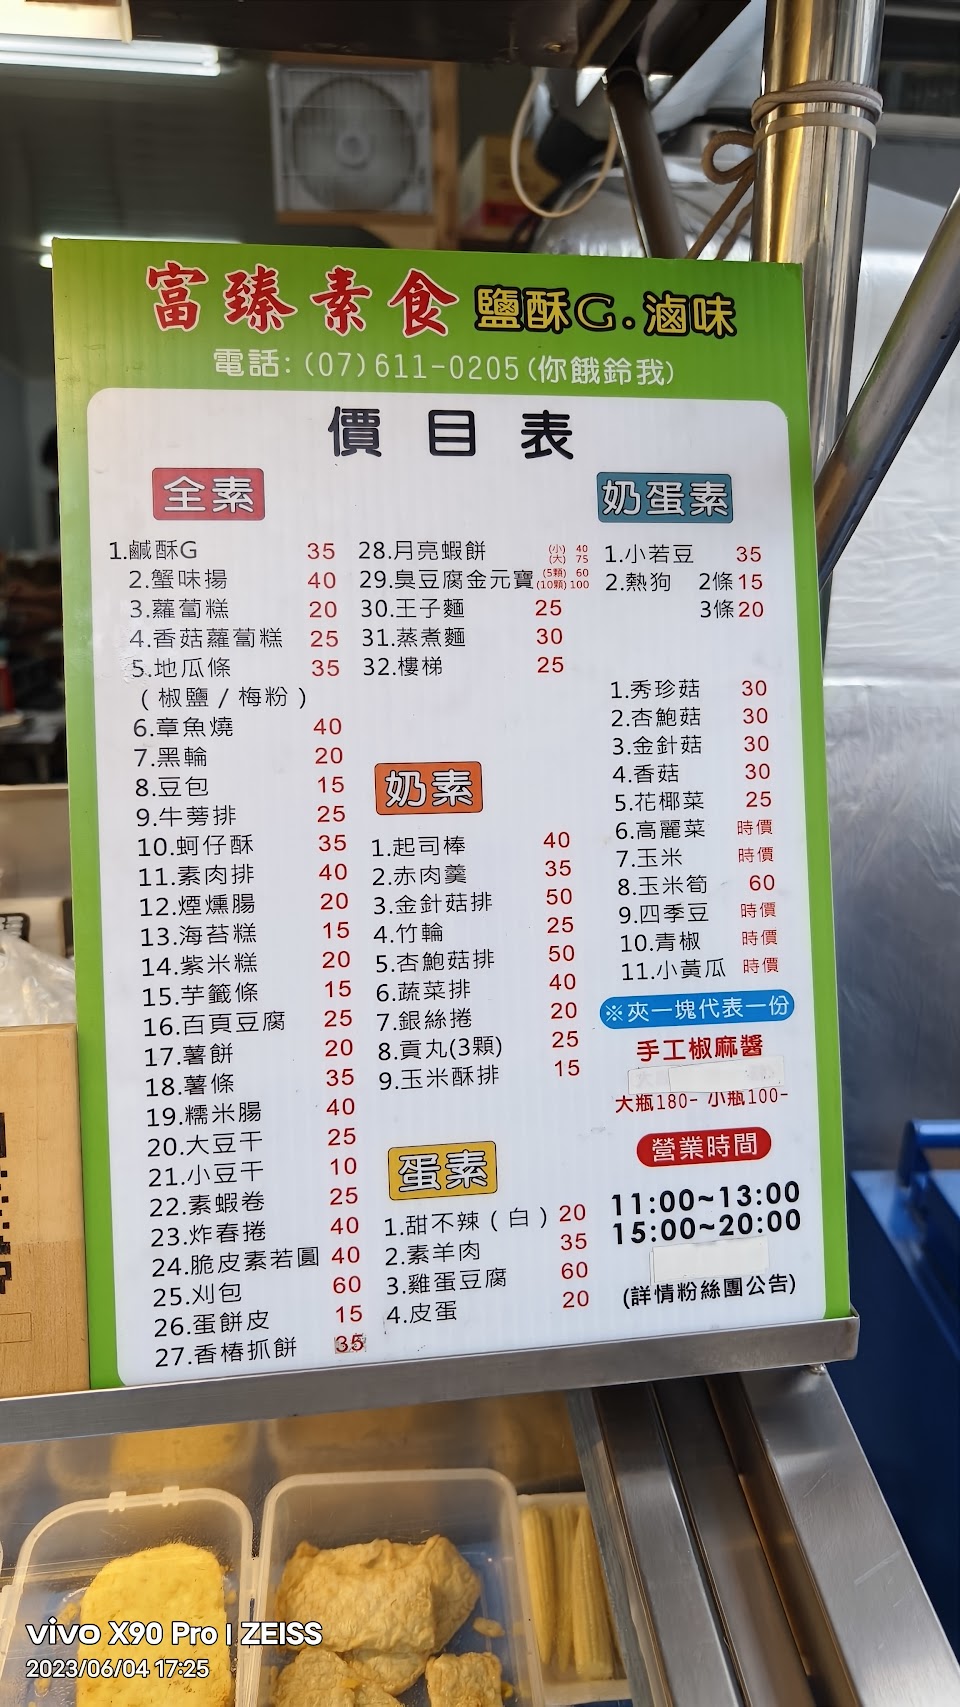 富臻素食 鹽酥G.滷味
電話: (07)611-0205(你餓鈴我)
價目表
全素
1.鹹酥G 35
2.蟹味揚 40
3.蘿蔔糕 20
4.香菇蘿蔔糕 25
5.地瓜條 35
(椒鹽/梅粉)
6.章魚燒 40
7.黑輪 20
8.豆包 15
9.牛蒡排 25
10.蚵仔酥 35
11.素肉排 40
12.煙燻腸 20
13.海苔糕 15
14.紫米糕 20
15.芋籤條 15
16.百頁豆腐 25
17.薯餅 20
18.薯條 35
19.糯米腸 40
20.大豆干 25
21.小豆干 10
22.素蝦卷 25
23.炸春捲 40
24.脆皮素若圓 40
25.刈包 60
26.蛋餅皮 15
27.香椿抓餅 35
28.月亮蝦餅 (小) 40 (大) 75
29.臭豆腐金元寶 (5顆) 60 (10顆) 100
30.王子麵 25
31.蒸煮麵 30
32.樓梯 25
奶素
1.起司棒 40
2.赤肉羹 35
3.金針菇排 50
4.竹輪 25
5.杏鮑菇排 50
6.蔬菜排 40
7.銀絲捲 20
8.貢丸(3顆) 25
9.玉米酥排 15
蛋素
1.甜不辣(白) 20
2.素羊肉 35
3.雞蛋豆腐 60
4.皮蛋 20
奶蛋素
1.小若豆 35
2.熱狗 2條15
3條20
1.秀珍菇 30
2.杏鮑菇 30
3.金針菇 30
4.香菇 30
5.花椰菜 25
6.高麗菜 時價
7.玉米 時價
8.玉米筍 60
9.四季豆 時價
10.青椒 時價
11.小黃瓜 時價
※夾一塊代表一份
手工椒麻醬
大瓶180- 小瓶100-
營業時間
11:00~13:00
15:00~20:00
(詳情粉絲團公告)
vivo X90 Pro | ZEISS
2023/06/04 17:25